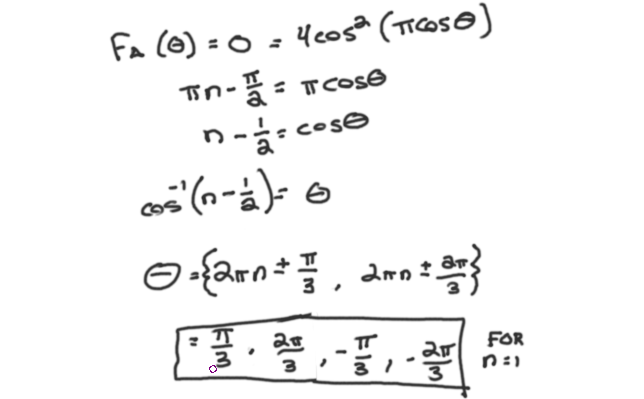 F_A (θ) = 0 = 4cos² (πcosθ)
πn - π/2 = πcosθ
n - 1/2 = cosθ
cos⁻¹(n - 1/2) = θ
θ = {2πn ± π/3 , 2πn ± 2π/3}
= π/3 , 2π/3 , -π/3 , -2π/3 FOR n=1